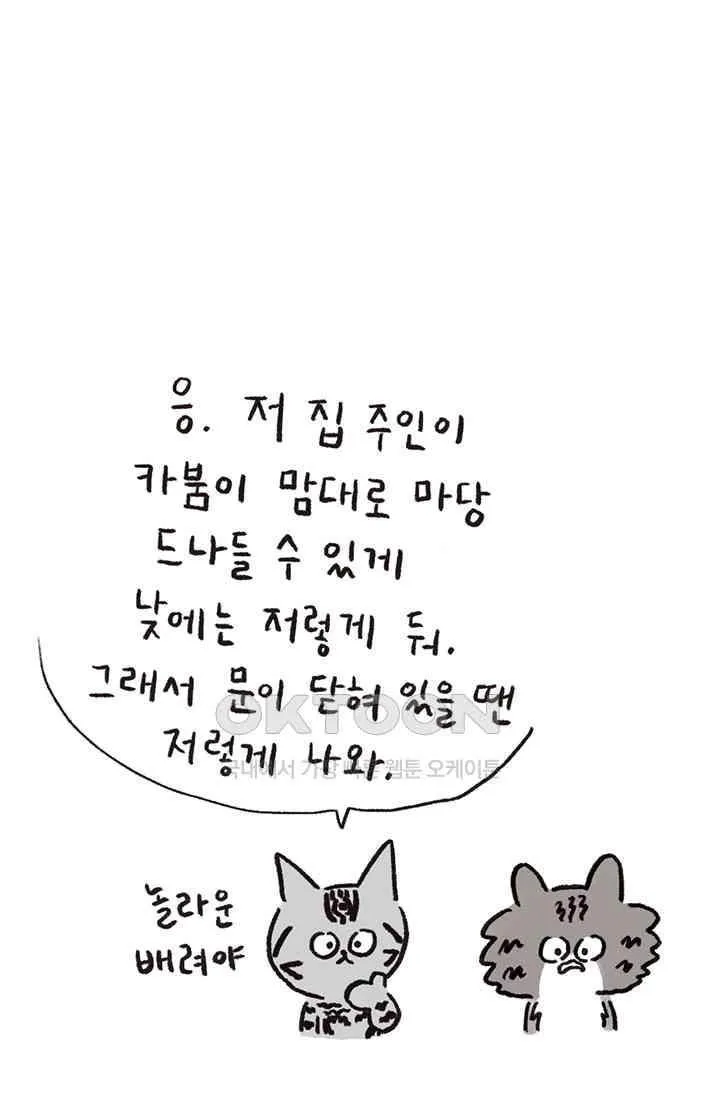 응. 저 집 주인이
카붐이 맘대로 마당
드나들 수 있게
낮에는 저렇게 둬.
그래서 문이 닫혀 있을 땐
저렇게 나와.
OKTOON
국내에서 가장 빠른 웹툰 오케이툰
놀라운
배려야